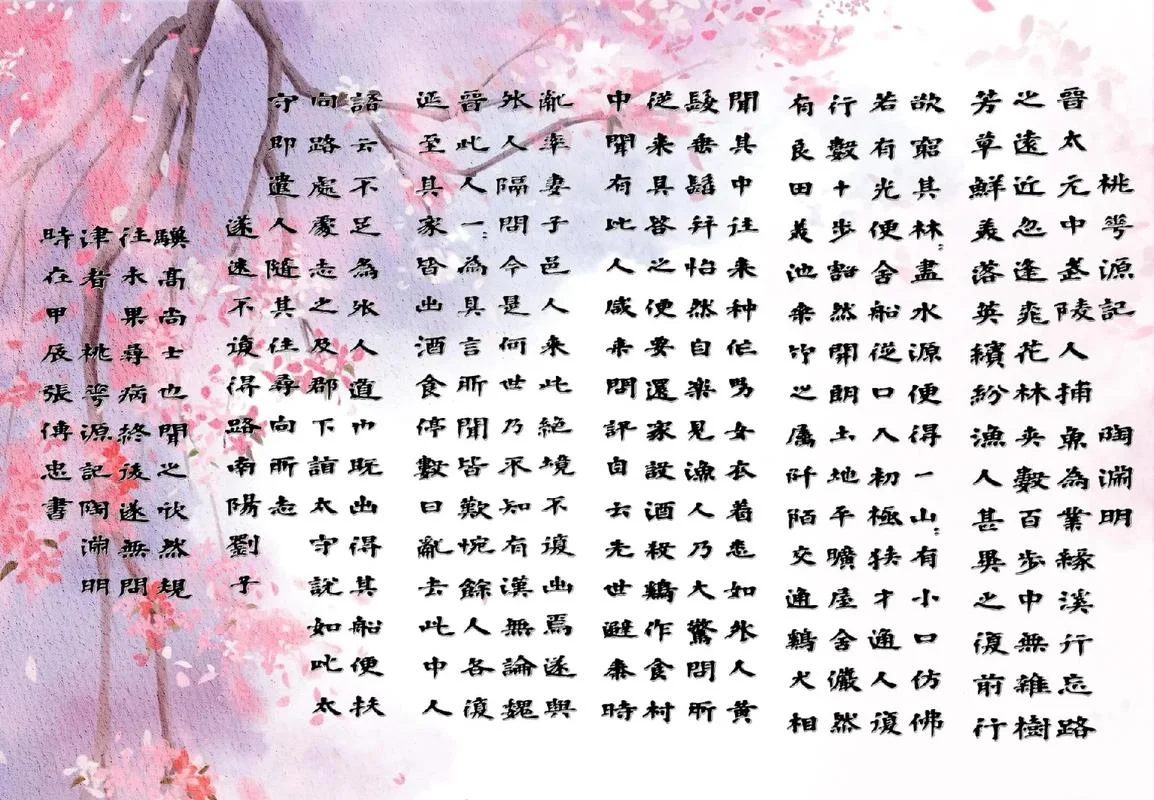 桃華源記 陶淵明
晉太元中武陵人捕魚為業緣溪行忘路
之遠近忽逢桃花林夾數百步中無雜樹
芳草鮮美落英繽紛漁人甚異之復前行
欲窮其林〻盡水源便得一山〻有小口仿佛
若有光便舍船從口入初極狹才通人復
行數十步豁然開朗土地平曠屋舍儼然
有良田美池桑竹之屬阡陌交通鷄犬相
聞其中往来种作男女衣着悉如外人黃
髮垂髫并怡然自樂見漁人乃大驚問所
從来具答之便要還家設酒殺鷄作食村
中聞有此人咸来問訊自云先世避秦時
亂率妻子邑人来此絕境不復出焉遂與
外人隔問今是何世乃不知有漢無論魏
晉此人一〻為具言所聞皆歎惋餘人各復
延至其家皆出酒食停數日辭去此中人
語云不足為外人道也既出得其船便扶
向路處處志之及郡下詣太守說如此太
守即遣人隨其往尋向所志
遂迷不復得路南陽劉子
驥高尚士也聞之欣然規
往未果尋病終後遂無問
津者 桃華源記陶淵明
時在甲辰張傳忠書